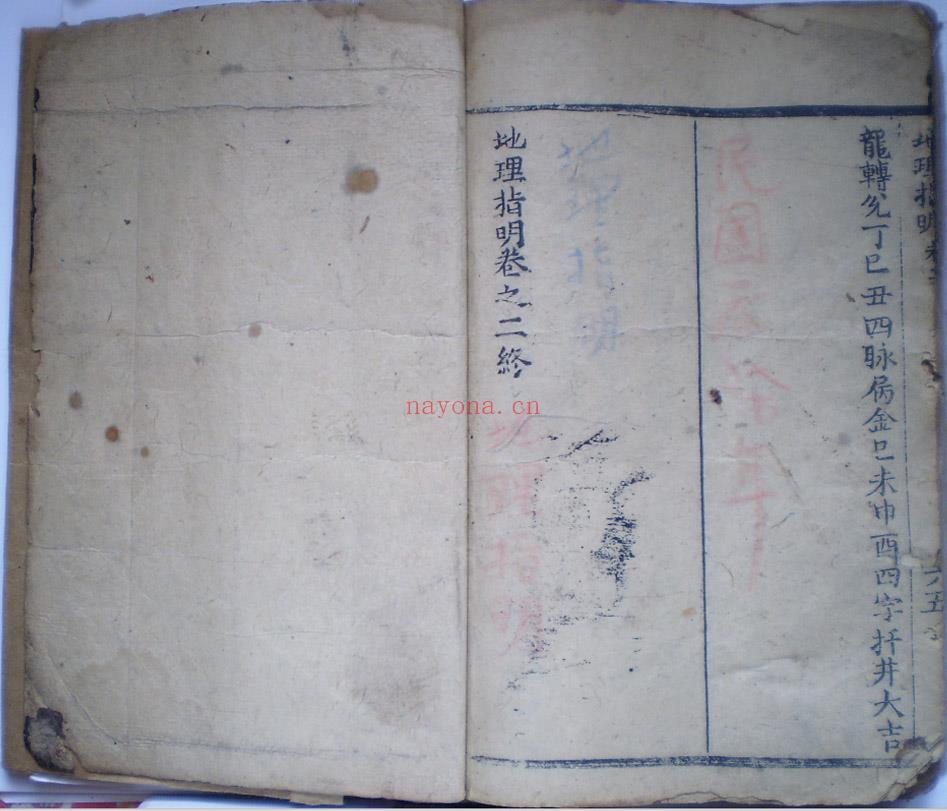 地理指明卷二
六五
龍轉兊丁巳丑四脉居金巳未巾酉四字扦井大吉
民國
年
地理指明
地理指明卷之二終
地理指明
nayona.cn